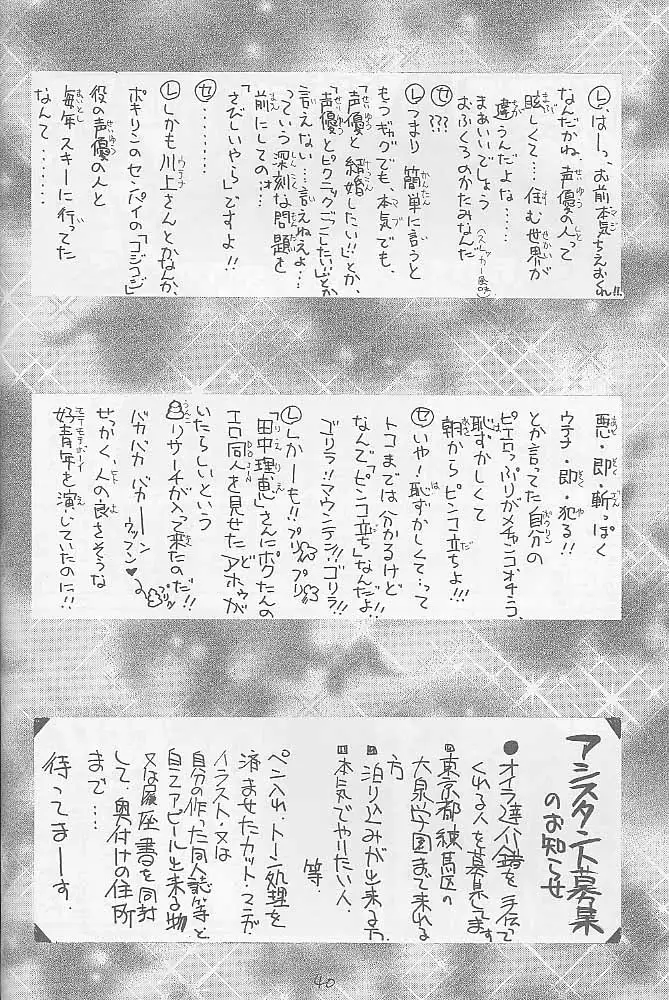 Ⓛ はーっ、お前本気ちえおくれ!!
なんだかね、声優の人って
眩しくて…。住む世界が
違うんだよな……
まあいいでしょう
おふくろのかたみなんだ
Ⓜ ???
Ⓛ つまり簡単に言うと
もつギグでも、本気でも、
「声優と結婚したい!!」とか、
「声優とピクニックごこしたい!!」とか
言えない…言えねえよ…
っていう深刻な問題を
前にしてのォ…
「さびしいやら」ですよ!!
セ ………
Ⓛ しかも川上さんとかなんか、
ポキリンのセンパイの「コジコジ」
役の声優の人と
毎年スキーに行ってた
なんて……
悪・即・斬っぽく
ウ子・即・犯る!!
とか言ってた自分の
ピエロっぷりがメチャンコオチョコ、
恥ずかしくて
朝からピンコ立ちよ!!!
セ いや!恥ずかしくて…って
トコまでは分かるけど
なんで「ピンコ立ち」なんだよ!!
ゴリラ!!マウンテン!!ゴリラ!!
Ⓛ しかーも!!プリプリ
「田中理恵」さんにポクたんの
エロ同人を見せたアホゥが
いたらしいという
リサーチが入って来たのだ!!
バカバカバカーン
ウッフン♥
せっかく、人の良さそうな
好青年を演じていたのに!!
アシスタント募集
のお知らせ
●オイラ達が錯を手伝って
くれる人を募集してます
■東京都練馬区の
大泉学園まで来れる
方
■泊り込みが出来る方
■本気でやりたい人、
等。
ペン入れ、トーン処理を
済ませたカット・マンガ
イラスト・又は
自分の作った同人誌等と
自己アピール出来る物
又は履歴書を同封
して、奥付けの住所
まで…
待ってまーす。
40